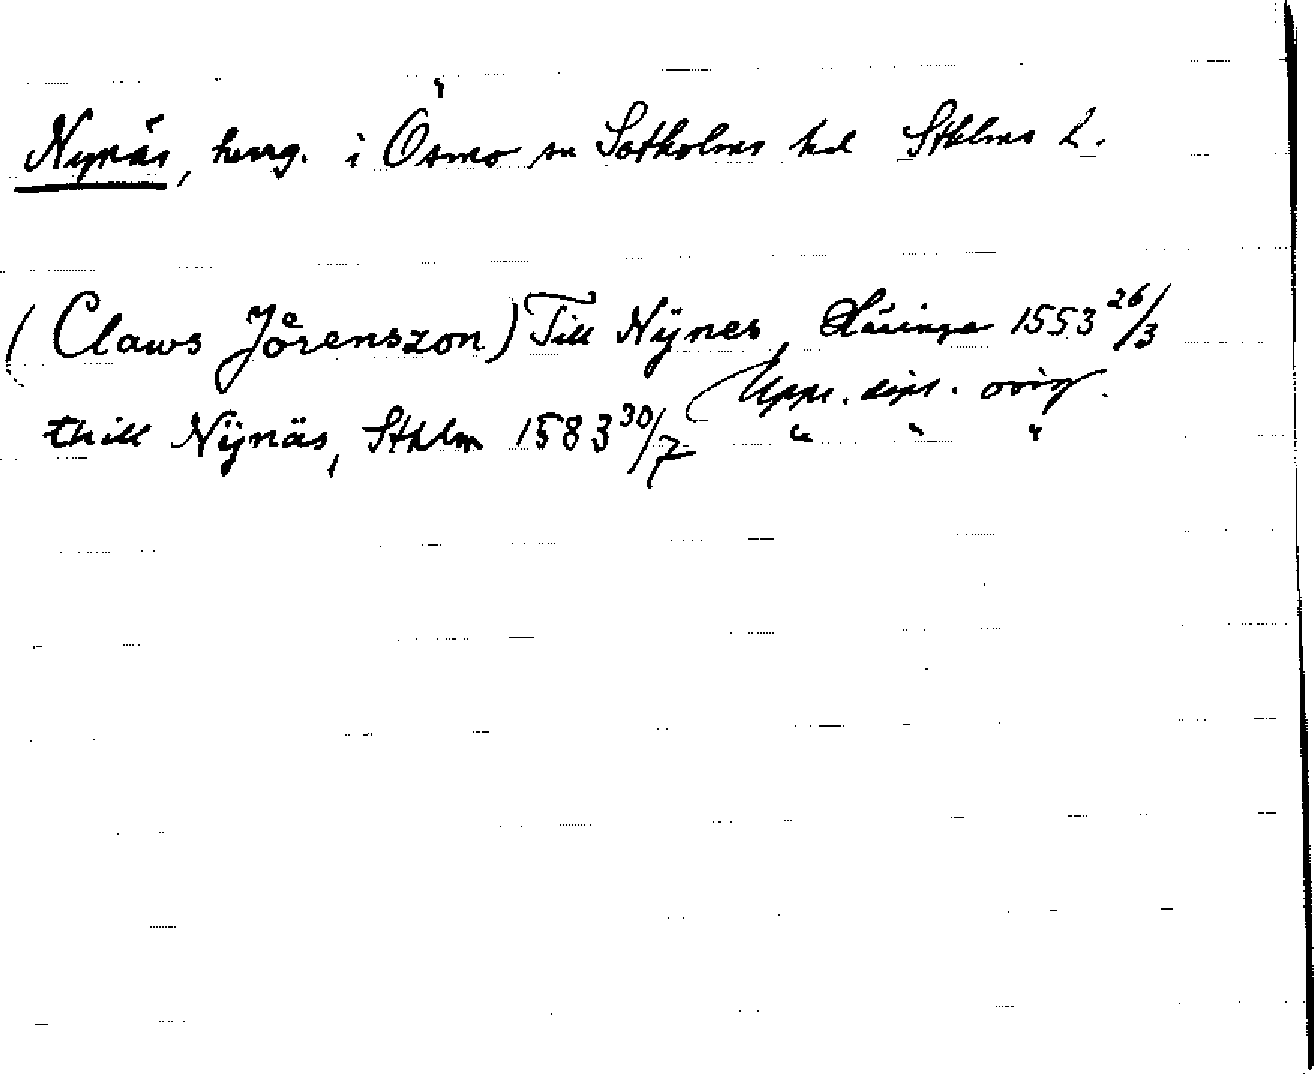 Nynäs, herrg. i Ösmo sn Sotholms hd Stklms L.
(Claws Jörenszon) Till Nÿnes, 1553 26/3
Upps. dipl. orig.
thill Nÿnäs, Sthlm 1583 30/7 " " "